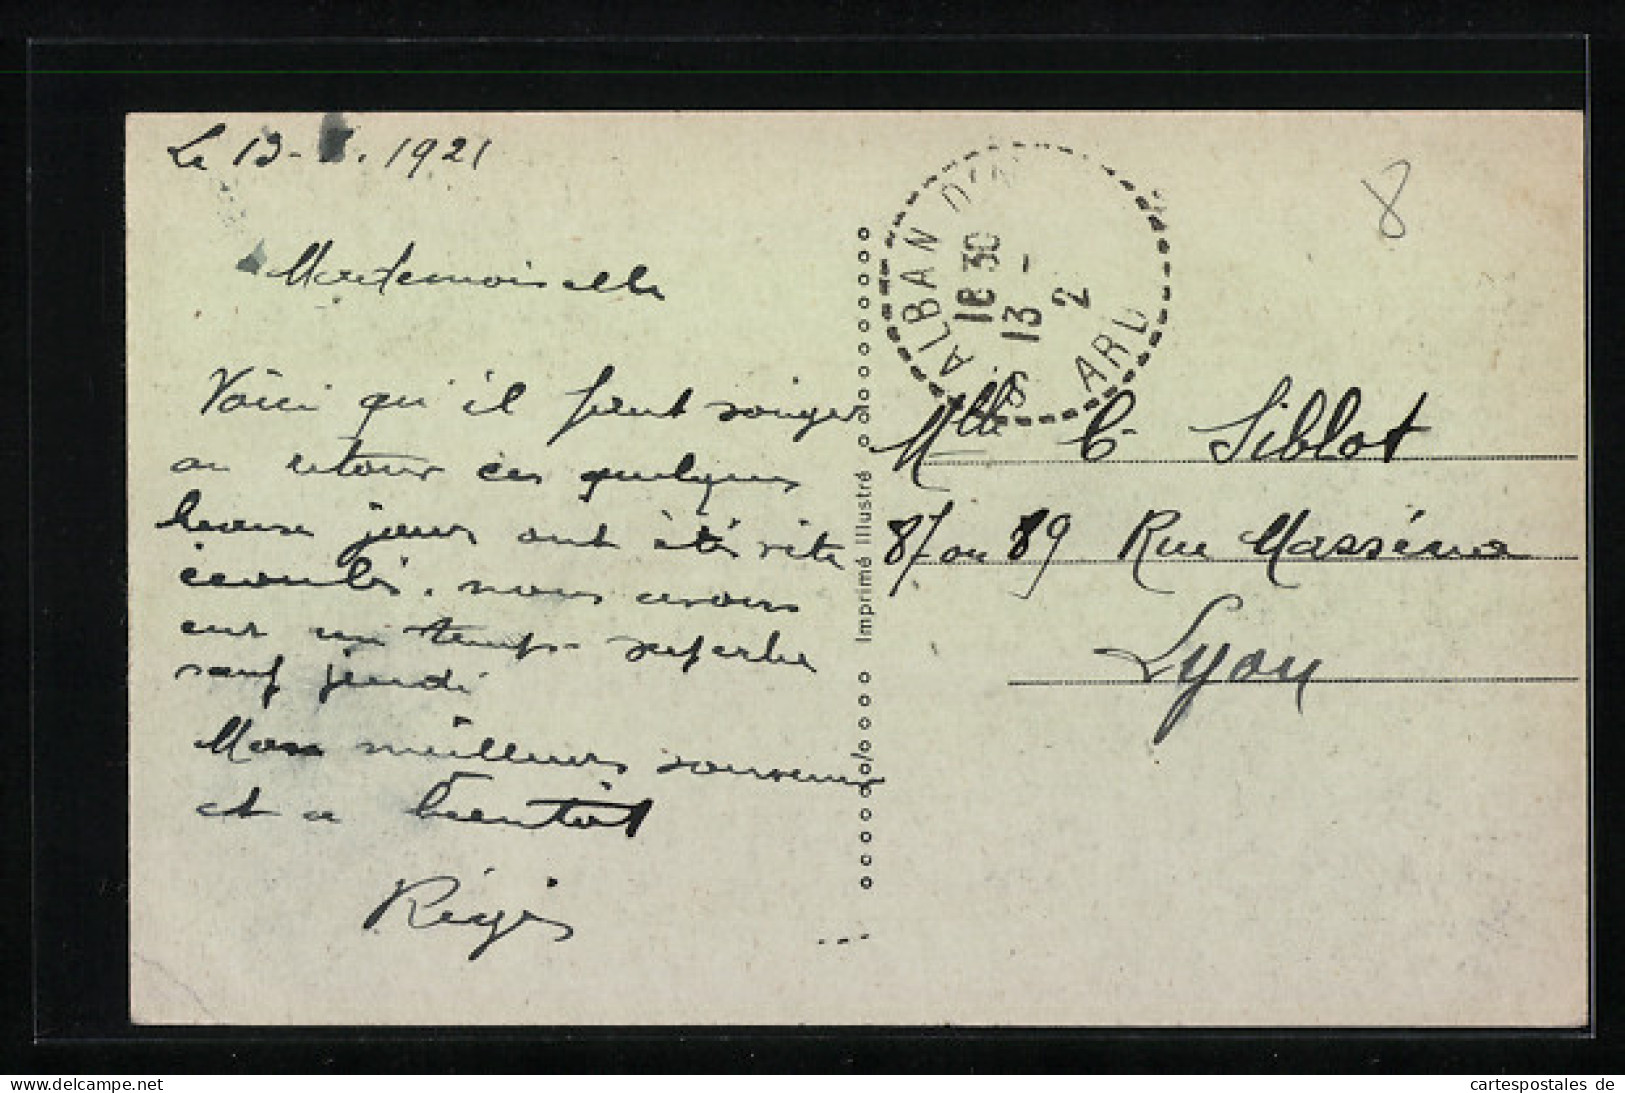 Le 13- . 1921
Mademoiselle
Voici qu'il faut songer
au retour ces quelques
beaux jours ont été vite
écoulés. nous avons
eur un temps superbe
sauf jeudi
Mes meilleurs souvenirs
et a bientôt
Régis
Imprimé Illustré
ALBAN D'A
18 30
13 -
2
S
ARD
8
Mlle C Siblot
87 ou 89 Rue Masséna
Lyon
delcampe.net
cartespostales de